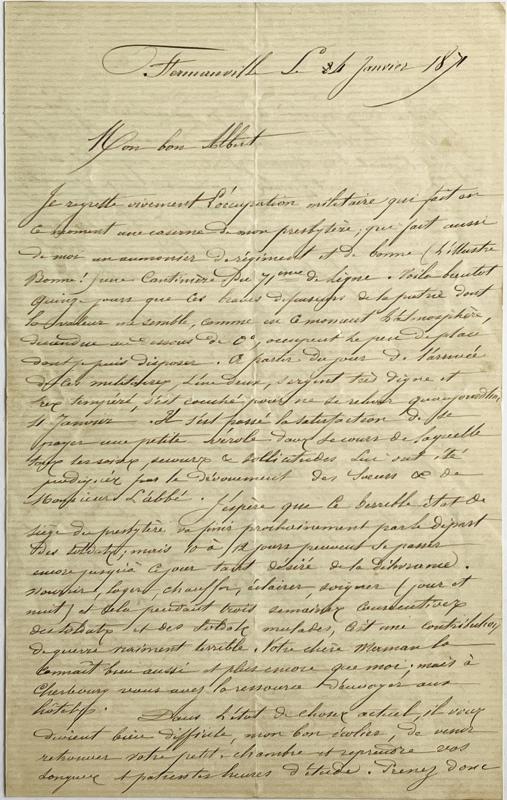 Fermanville Le 24 Janvier 1871
Mon bon Albert
Je regrette vivement l'occupation militaire qui fait en
ce moment une caserne de mon presbytère ; qui fait aussi
de moi un aumonier de régiment et de bonne (l'illustre
Bonne !) une Cantinière du 71me de ligne. Voila bientot
quinze jours que ces braves défenseurs de la patrie dont
la valeur me semble, comme en ce moment l'atmosphère,
descendue au dessous de 0°, occupent le peu de place
dont je puis disposer. A partir du jour de l'arrivée
de ces militaires, L'un d'eux, sergent très digne et
très tempéré, s'est couché pour ne se relever que
11 Janvier. Il s'est passé la satisfaction de se
payer une petite vérole dans le cours de laquelle
tous les soins, secours & sollicitudes lui ont été
prodigués par le dévouement des Sœurs & de
Monsieur L'abbé. J'espère que le terrible état de
siège du presbytère va finir prochainement par le départ
des soldats ; mais 10 à 12 jours peuvent se passer
encore jusqu'à ce jour tant désiré de la Délivrance.
Nourrir, loger, chauffer, éclairer, soigner (jour et
nuit) et cela pendant trois semaines consécutives
des soldats et des soldats malades, c'est une contribution
de guerre vraiment terrible. Votre chère Maman la
connaît bien aussi et plus encore que moi ; mais à
Cherbourg vous avez la ressource d'envoyer aux
hôtels.
Dans l'état de choses actuel, il vous
devient bien difficile, mon bon écolier, de venir
retrouver votre petite chambre et reprendre vos
longues et patientes heures d'étude. Prenez donc